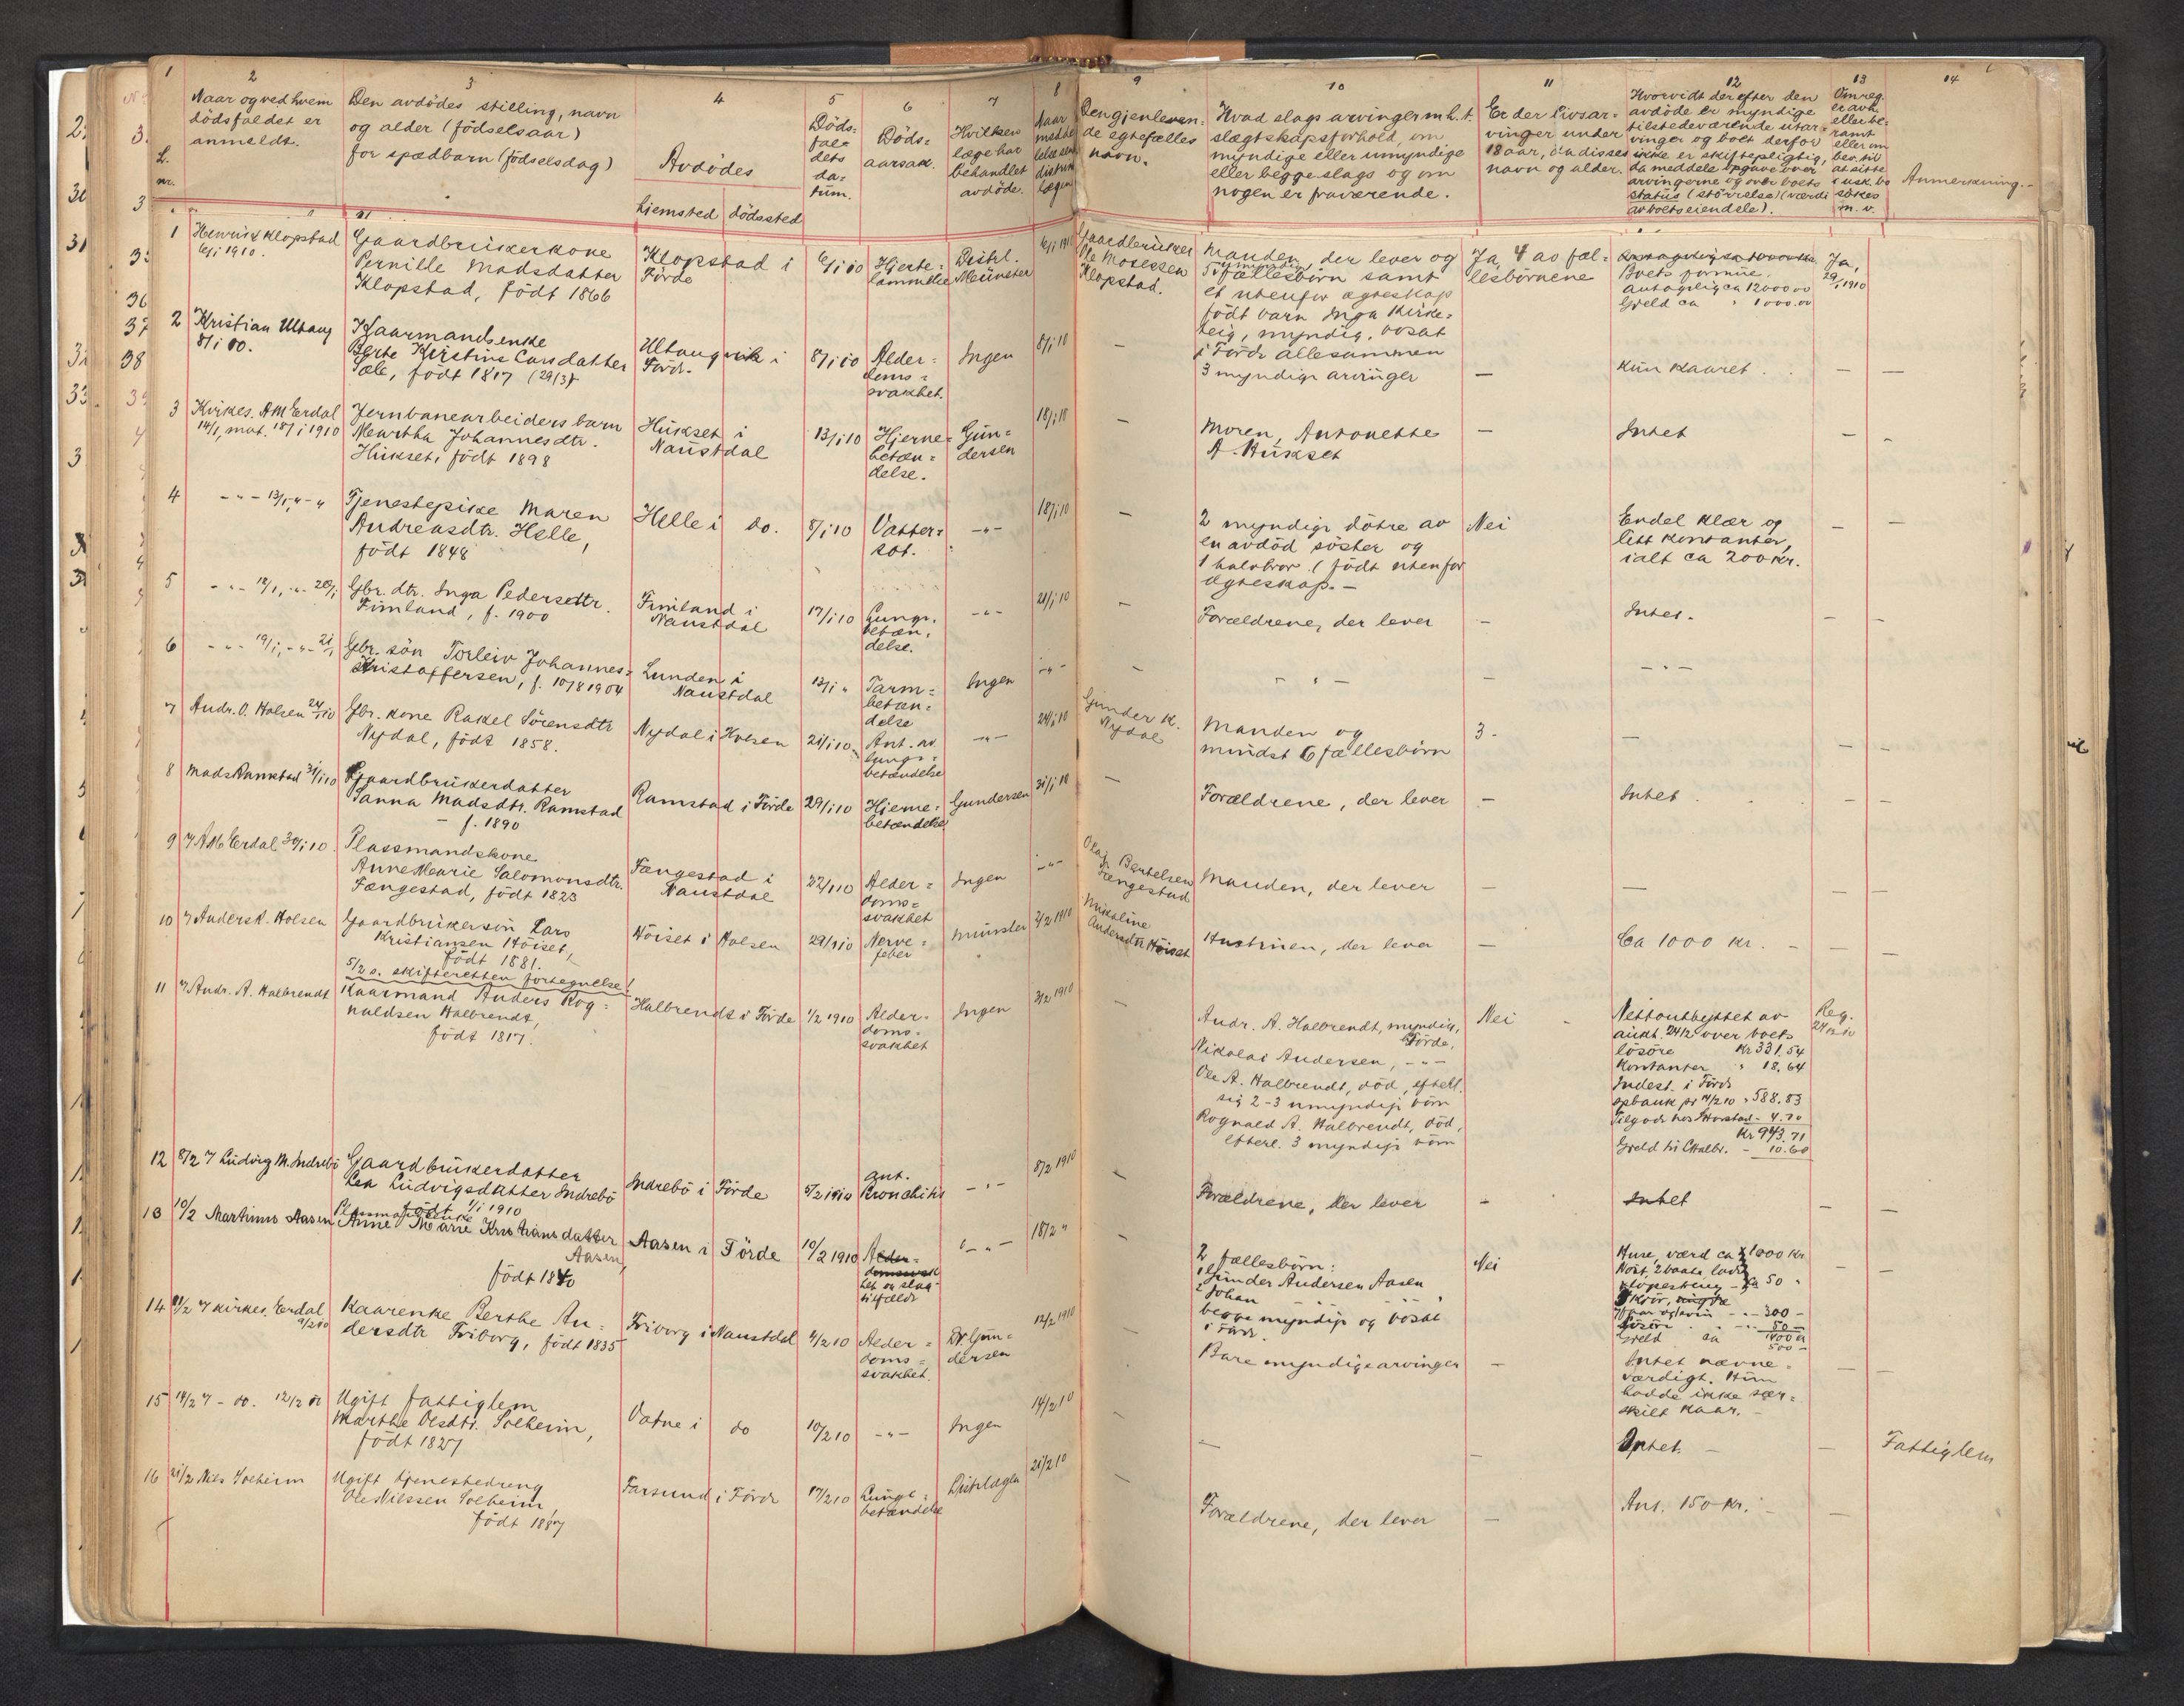 1 2 3 4 5 6 7 8 9 10 11 12 13 14
L. nr.
Naar og ved hvem
dödsfaldet er
anmeldt.
Den avdödes stilling, navn
og alder (födselsaar)
for spædbarn (födselsdag)
Avdödes
hjemsted dödssted
Döds-
fal-
dets
da-
tum.
Döds-
aarsak.
Hvilken
læge har
behandlet
avdöde.
Naar
Den gjenleven-
de egtefælles
navn.
Hvad slags arvinger m.h.t.
slægtskapsforhold, om
myndige eller umyndige
eller begge slags og om
nogen er fraværende.
Er der livsar-
vinger under
18 aar, da disses
navn og alder.
Hvorvidt der efter den
avdöde er myndige
tilstedeværende utar-
vinger og boet derfor
ikke er skiftepligtig,
da meddele opgave over
arvingerne og over boets
status (störrelse) (værdi
av boets eiendele).
Om reg.
er avh.
eller be-
ramt
eller om
bev. til
at sitte
i usk. bo
sökes
m. v.
Anmerkning.
1 Henrik Klopstad
6/1 1910.
Gaardbrukerkone
Pernille Madsdatter
Klopstad, födt 1866
Klopstad i
Förde
6/1 10
Hjerte-
lammelse
Distrl.
Münster
6/1 1910
Gaardbruker
Ole Mosessen
Klopstad.
Manden, der lever og
5 fællesbörn samt
et utenfor ægteskap
födt barn Inga Kirke-
teig, myndig, bosat
i Förde allesammen
Ja, 4 av fæl-
lesbörnene
Boets formue
antagelig ca 12000.00
Gjeld ca " 1000.00
Ja,
29/1 1910
2 Kristian Ultang
8/1 10.
Kaarmandsenke
Berte Kirstine Larsdatter
Sæle, födt 1817 (29/3)
Ultangvik i
Förde.
8/1 10
Alder-
doms-
svakhet.
Ingen
8/1 10
—
3 myndige arvinger
—
Kun kaaret.
— —
3 Kirkes. AM Erdal
14/1, mot. 18/1 1910
Jernbanearbeiders barn
Martha Johannesdtr.
Hukset, födt 1898
Hukset i
Naustdal
13/1 10
Hjerne-
betæn-
delse.
Gun-
dersen
18/1 10
—
Moren, Antonette
A. Hukset
—
Intet
— -
4 - " - 13/1, - " - "
Tjenestepike Maren
Andreasdtr. Helle,
födt 1848
Helle i do.
8/1 10
Vatter-
sot.
- " -
18/1 10
—
2 myndige dötre av
en avdöd söster og
1 halvbror (födt utenfor
ægteskap. —
Nei
Endel klær og
litt kontanter,
ialt ca 200 kr.
— —
5 - " - 18/1, - " - 20/1
Gbr. dtr. Inga Pedersdtr.
Fimland, f. 1900
Fimland i
Naustdal
17/1 10
Lunge-
betæn-
delse.
- " -
21/1 10
—
Forældrene, der lever
-
Intet.
— —
6 - " - 19/1, - " - 21/1
Gbr. sön Torleiv Johannes-
Kristoffersen, f. 10/8 1904
Lunden i
Naustdal
13/1 "
Tarm-
betæn-
delse
Ingen
- " -
—
- " -
—
- " -
7 Andr. O. Holsen 24/1 10
Gbr. kone Rakel Sörensdtr
Nydal, födt 1858.
Nydal i Holsen
21/1 10
Ant. av
lungebe-
betændelse
- " -
24/1 10
Gunder K.
Nydal
Manden og
mindst 6 fællesbörn
3 -
—
— —
8 Mads Ramstad 31/1 10
Gaardbrukerdatter
Sanna Madsdtr. Ramstad
— f. 1890
Ramstad i Förde
29/1 10
Hjerne-
betændelse
Gundersen
31/1 10
—
Forældrene, der lever
-
Intet.
— —
9 7 AM Erdal 30/1 10.
Plassmandskone
Anne Marie Salomonsdtr.
Fængestad, födt 1823
Fængestad i
Naustdal
22/1 10
Alder-
doms-
svakhet
Ingen
- " -
Olaj Bertelsen
Fængestad
Manden, der lever
—
—
— —
10 7 Anders K. Holsen
Gaardbrukersön Lars
Kristiansen Höiset,
födt 1881.
5/2 s. skifteretten fortegnelse!
Höiset i Holsen
29/1 10
Nerve-
feber
Münster
2/2 1910
Mikaline
Andersdtr Höiset
Hustruen, der lever
—
Ca 1000 kr.
— —
11 7 Andr. A. Halbrendt
Kaarmand Anders Rog-
naldsen Halbrendt,
födt 1817.
Halbrendt i Förde
1/2 1910
Alder-
doms-
svakhet
Ingen
3/2 1910
—
Andr. A. Halbrendt, myndig,
Förde,
Nikolai Andersen, - " -
Ole A. Halbrendt, död, efterl.
sig 2-3 umyndige börn
Rognald A. Halbrendt, död,
efterl. 3 myndige börn
Nei
Nettoutbyttet av
aukt. 24/2 over boets
lösöre Kr 331.54
Kontanter " 18.64
Indest. i Förde
spbank pr 14/2 10 " 588.83
Tilgode hos Horstad - 4.70
Kr 943.71
Gjeld til Halbr. - 10.60
Reg.
24/2 10
12 8/2 7 Ludvig M. Indrebö
Gaardbrukerdatter
Lea Ludvigsdatter Indrebö
födt 1/1 1910
Indrebö i Förde
5/2 1910
ant.
Bronchitis
- " -
8/2 1910
—
Forældrene, der lever
-
Intet
— —
13 10/2 Martinus Aasen
Plassmandsenke
Anne Marie Kristiansdatter
Aasen,
födt 1840
Aasen i Förde
10/2 1910
Alder-
domssvak
het og slag-
tilfælde
- " -
18/2 "
—
2 fællesbörn:
1 Gunder Andersen Aasen
2 Johan " "
begge myndige og bosat
i Förde.
Nei
Huse, værd ca 1000 kr
Nöst, 2 baate
ca 50 "
- " - 300 -
lösöre - " - 50 -
Gjeld ca 1400 kr
500 -
— —
14 11/2 7 kirkes. Erdal
9/2 10
Kaarenke Berthe An-
dersdtr Friborg, födt 1835
Friborg i Naustdal
4/2 10
Alder-
doms-
svakhet.
Dr. Gun-
dersen
12/2 1910
—
Bare myndige arvinger
—
Intet nævne-
værdigt. Hun
hadde ikke sær-
skilt kaar. —
— —
15 14/2 7 - do. 12/2 10
Ugift fattiglem
Marthe Olsdtr. Solheim,
födt 1827
Vatne i do
10/2 10
- " -
Ingen
14/2 10
—
—
—
Intet. —
—
Fattiglem
16 21/2 Nils Solheim
Ugift tjenestedreng
Ole Nilssen Solheim,
födt 1887
Farsund i Förde
17/2 10
Lunge-
betændelse
Distrlægen
21/2 10
—
Forældrene, der lever
—
Ant. 150 kr. —
—